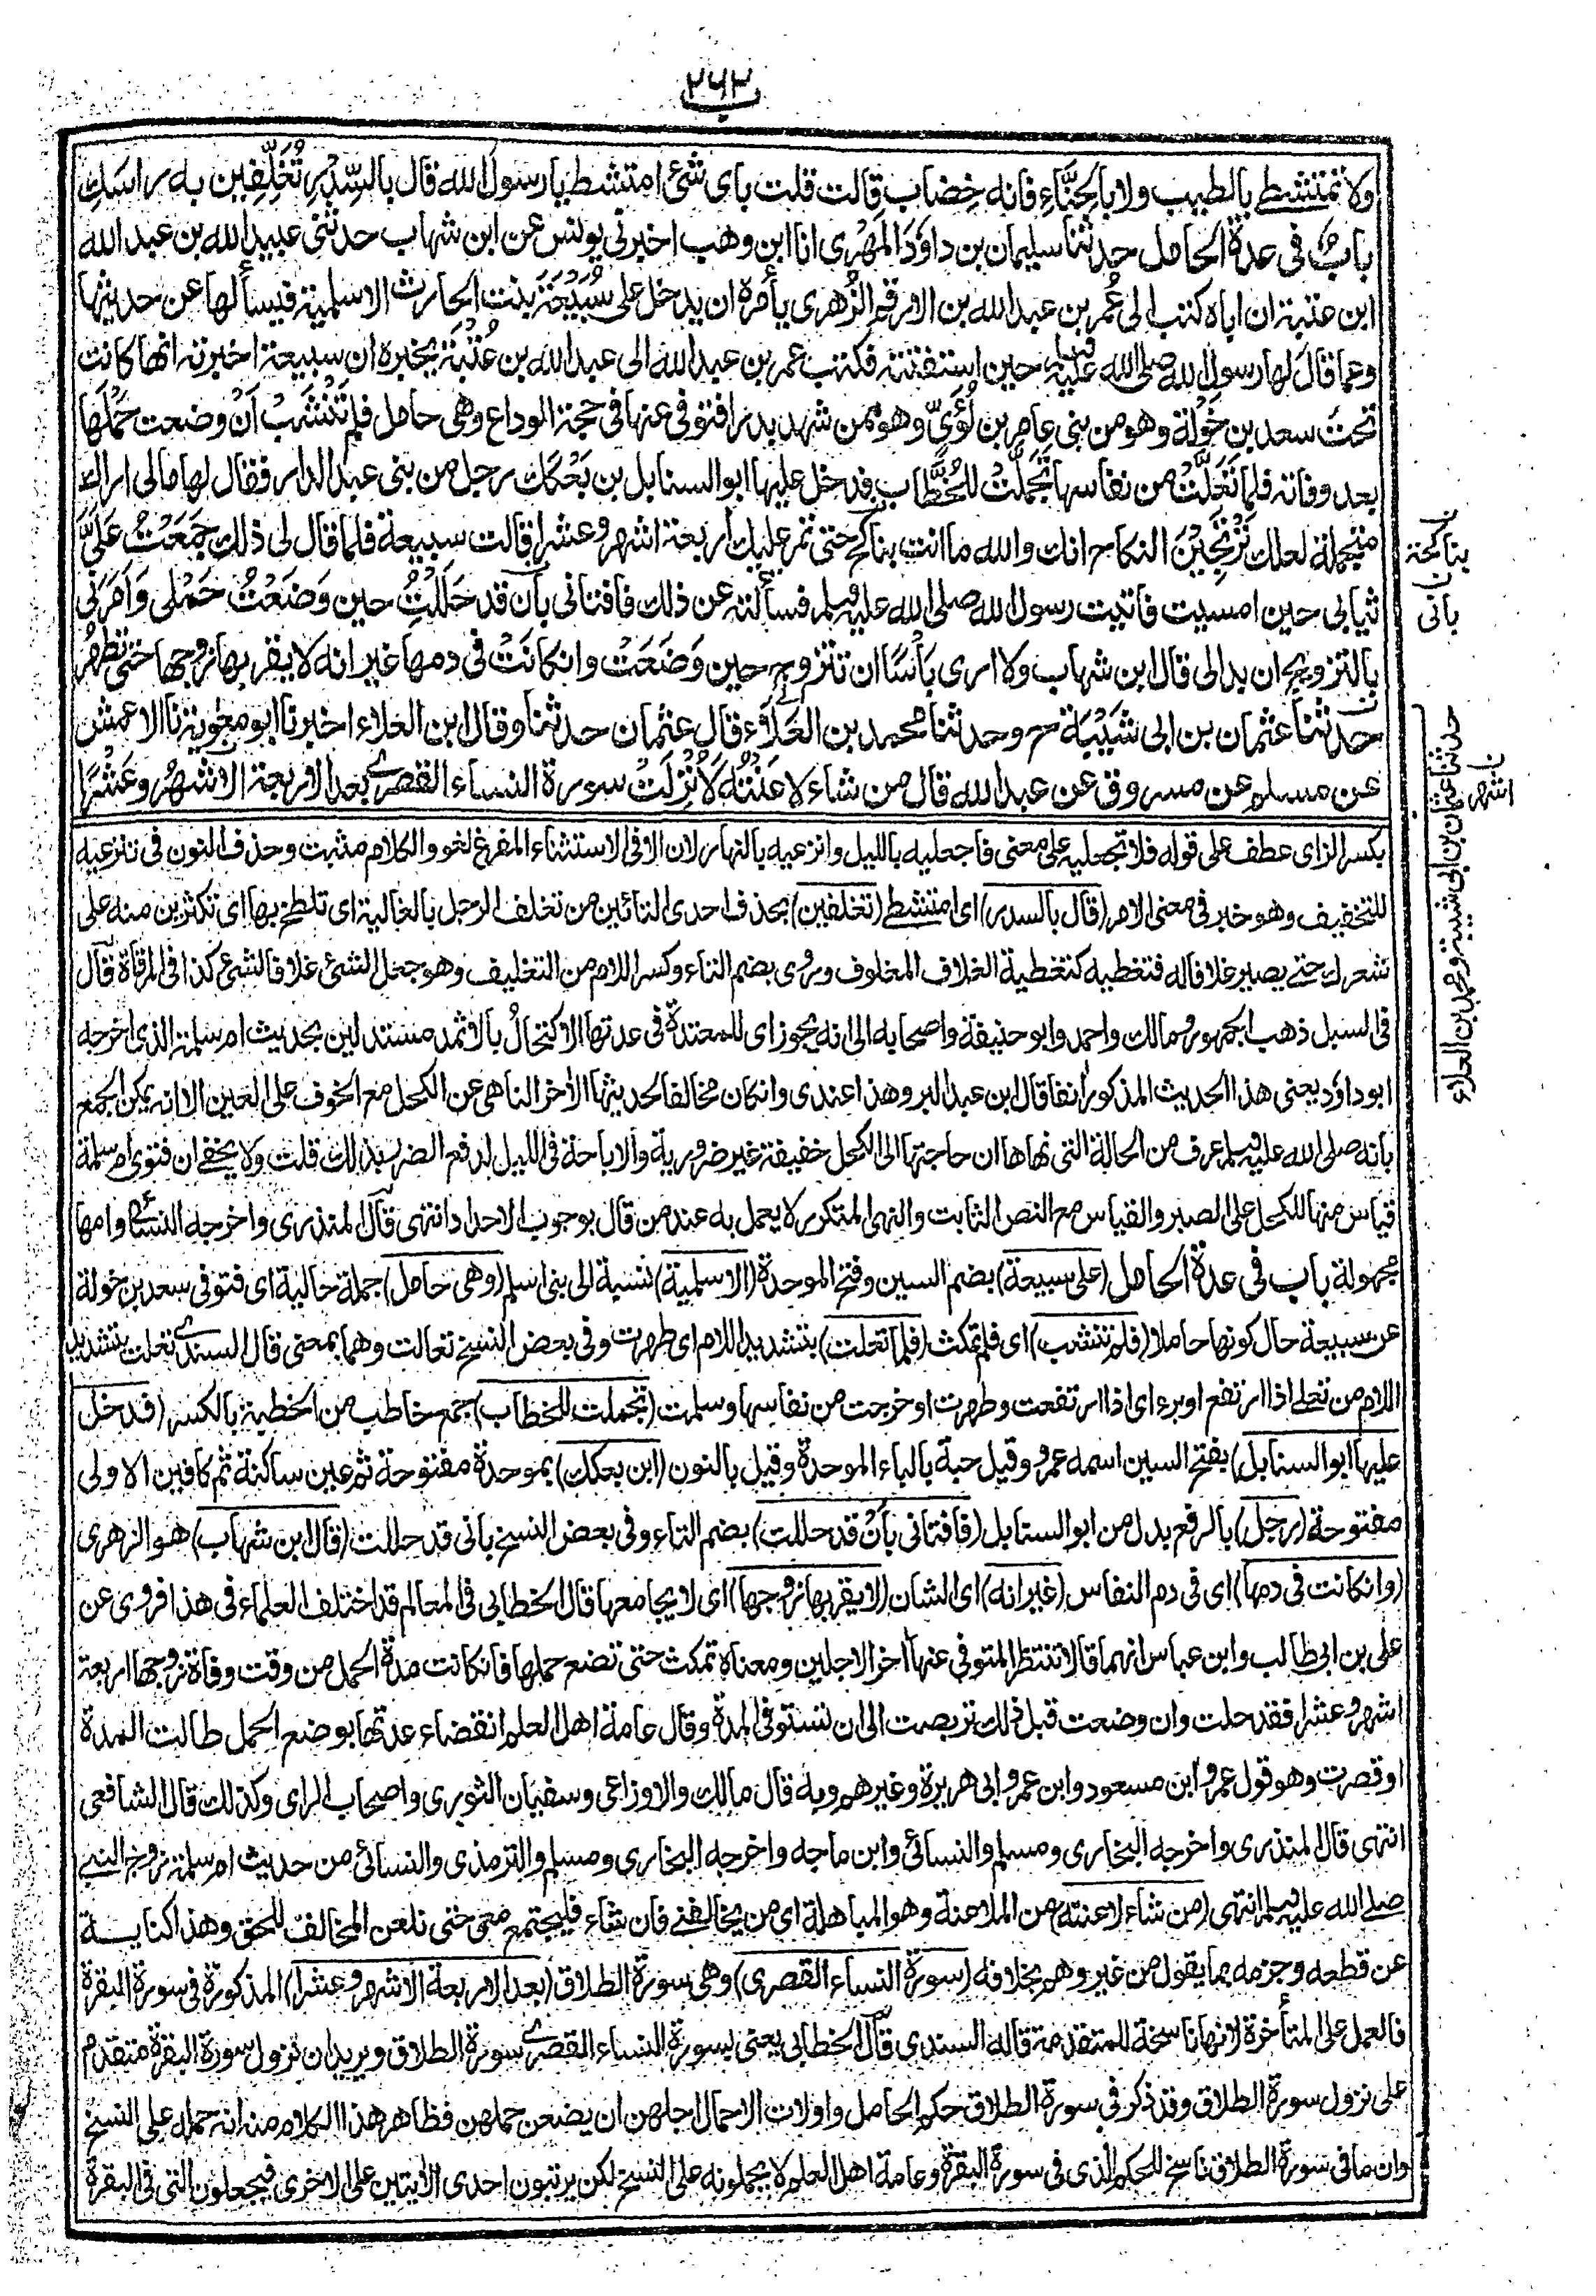 ٢٦٣
ولا تمتشطى بالطيب ولا بالحِنَّاءِ فانه خِضاب قالت قلت باى شئ امتشط يا رسول الله قال بالسِّدْرِ تُغَلِّفِين به راسَكِ
باب فى عدة الحامل حدثنا سليمان بن داوَدَ المَهْرى انا ابن وهب اخبرنى يونس عن ابن شهاب حدثنى عبيد الله بن عبد الله
ابن عتبة ان اباه كتب الى عُمر بن عبد الله بن الارقم الزُهرى يأمره ان يدخل على سُبَيْعَةَ بنت الحارث الاسلمية فيسألها عن حديثها
وعما قال لها رسول الله صلى الله عليه وسلم حين استفتته فكتب عمر بن عبد الله الى عبد الله بن عُتْبَةَ يخبره ان سبيعة اخبرته انها كانت
تحت سعد بن خَوْلة وهو من بنى عامر بن لُؤَىّ وهو ممن شهد بدرا فتوفى عنها فى حجة الوداع وهى حامل فلم تَنْشَبْ اَنْ وضعت حَمْلَها
بعد وفاته فلما تَعَلَّتْ من نفاسها تَجَمَّلَتْ للخُطَّاب فدخل عليها ابو السنابل بن بَعْكَك رجل من بنى عبد الدار فقال لها مالى اراك
متجملة لعلك تَرْتَجِيْنَ النكاح انك والله ما انت بناكح حتى تمر عليك اربعة اشهر وعشر قالت سبيعة فلما قال لى ذلك جَمَعْتُ عَلَىَّ
ثيابى حين امسيت فاتيت رسول الله صلى الله عليه وسلم فسألته عن ذلك فافتانى بأن قد حَلَلْتُ حين وَضَعْتُ حَمْلى وَاَمَرَنى
بالتزويج ان بدا لى قال ابن شهاب ولا ارى بَأسًا ان تتزوج حين وَضَعَتْ وانكانَتْ فى دمها غير انه لا يقربها زوجها حتى تطهر
حدثنا عثمان بن ابى شَيْبَة ح وحدثنا محمد بن العَلَاءِ قال عثمان حدثنا وقال ابن العلاء اخبرنا ابو معوية نا الاعمش
عن مسلم عن مسروق عن عبد الله قال من شاء لاعَنْتُه لَاُنْزِلَتْ سورة النساء القصرى بعد الاربعة الاشهُر وعَشْرًا
بكسر الزاى عطف على قوله فلا تجعليه على معنى فاجعليه بالليل وانزعيه بالنهار لان الا فى الاستثناء المفرغ لغو والكلام مثبت وحذف النون فى تنزعيه
للتخفيف وهو خبر فى معنى الامر (قال بالسدر) اى امتشطى (تغلفين) بحذف احدى التائين من تغلف الرجل بالغالية اى تلطخ بها اى تكثرين منه على
شعرك حتى يصير غلافا له فتغطيه كتغطية الغلاف المغلوف وروى بضم التاء وكسر اللام من التغليف وهو جعل الشئ غلافا لشئ كذا فى المرقاة قال
فى السبل ذهب الجمهور ومالك واحمد وابو حنيفة واصحابه الى انه يجوز اى للمعتدة فى عدتها الاكتحال بالاثمد مستدلين بحديث ام سلمة الذى اخرجه
ابو داود يعنى هذا الحديث المذكور آنفا قال ابن عبد البر وهذا عندى وانكان مخالفا لحديثها الآخر الناهى عن الكحل مع الخوف على العين الا انه يمكن الجمع
بانه صلى الله عليه وسلم عرف من الحالة التى نهاها ان حاجتها الى الكحل خفيفة غير ضرورية والاباحة فى الليل لدفع الضرر بذلك قلت ولا يخفى ان فتوى ام سلمة
قياس منها للكحل على الصبر والقياس مع النص الثابت والنهى المتكرر لا يعمل به عند من قال بوجوب الاحداد انتهى قال المنذرى واخرجه النسائى وامها
مجهولة باب فى عدة الحامل (على سبيعة) بضم السين وفتح الموحدة (الاسلمية) نسبة الى بنى اسلم (وهى حامل) جملة حالية اى فتوفى سعد بن خولة
عن سبيعة حال كونها حاملا (فلم تنشب) اى فلم تمكث (فلما تعلت) بتشديد اللام اى طهرت وفى بعض النسخ تعالت وهما بمعنى قال السندى تعلت بتشديد
اللام من تعلى اذا ارتفع او برء اى اذا ارتفعت وطهرت او خرجت من نفاسها وسلمت (تجملت للخطاب) جمع خاطب من الخطبة بالكسر (فدخل
عليها ابو السنابل) بفتح السين اسمه عمرو وقيل حبة بالباء الموحدة وقيل بالنون (ابن بعكك) بموحدة مفتوحة ثم عين ساكنة ثم كافين الاولى
مفتوحة (رجل) بالرفع بدل من ابو السنابل (فافتانى بأن قد حللت) بضم التاء وفى بعض النسخ بانى قد حللت (قال ابن شهاب) هو الزهرى
(وانكانت فى دمها) اى فى دم النفاس (غير انه) اى الشان (لا يقربها زوجها) اى لا يجامعها قال الخطابى فى المعالم قد اختلف العلماء فى هذا فروى عن
على بن ابى طالب وابن عباس انهما قالا تنتظر المتوفى عنها آخر الاجلين ومعناه تمكث حتى تضع حملها فانكانت مدة الحمل من وقت وفاة زوجها اربعة
اشهر وعشرا فقد حلت وان وضعت قبل ذلك تربصت الى ان تستوفى المدة وقال عامة اهل العلم انقضاء عدتها بوضع الحمل طالت المدة
او قصرت وهو قول عمر وابن مسعود وابن عمر وابى هريرة وغيرهم وبه قال مالك والاوزاعى وسفيان الثورى واصحاب الراى وكذلك قال الشافعى
انتهى قال المنذرى واخرجه البخارى ومسلم والنسائى وابن ماجه واخرجه البخارى ومسلم والترمذى والنسائى من حديث ام سلمة زوج النبى
صلى الله عليه وسلم انتهى (من شاء لاعنته) من الملاعنة وهو المباهلة اى من يخالفنى فان شاء فليجتمع معى حتى نلعن المخالف للحق وهذا كناية
عن قطعه وجزمه بما يقول من غير وهم بخلافه (سورة النساء القصرى) وهى سورة الطلاق (بعد الاربعة الاشهر وعشرا) المذكورة فى سورة البقرة
فالعمل على المتأخرة لانها ناسخة للمتقدمة قاله السندى قال الخطابى يعنى بسورة النساء القصرى سورة الطلاق ويريد ان نزول سورة البقرة متقدم
على نزول سورة الطلاق وقد ذكر فى سورة الطلاق حكم الحامل واولات الاحمال اجلهن ان يضعن حملهن فظاهر هذا الكلام منه انه حمله على النسخ
وان ما فى سورة الطلاق ناسخ للحكم الذى فى سورة البقرة وعامة اهل العلم لا يحملونه على النسخ لكن يرتبون احدى الآيتين على الاخرى فيجعلون التى فى البقرة
ن
بناكحة
ن
بانى
ن
اشهر
حدثنا عثمان بن ابى شيبة ومحمد بن العلاء